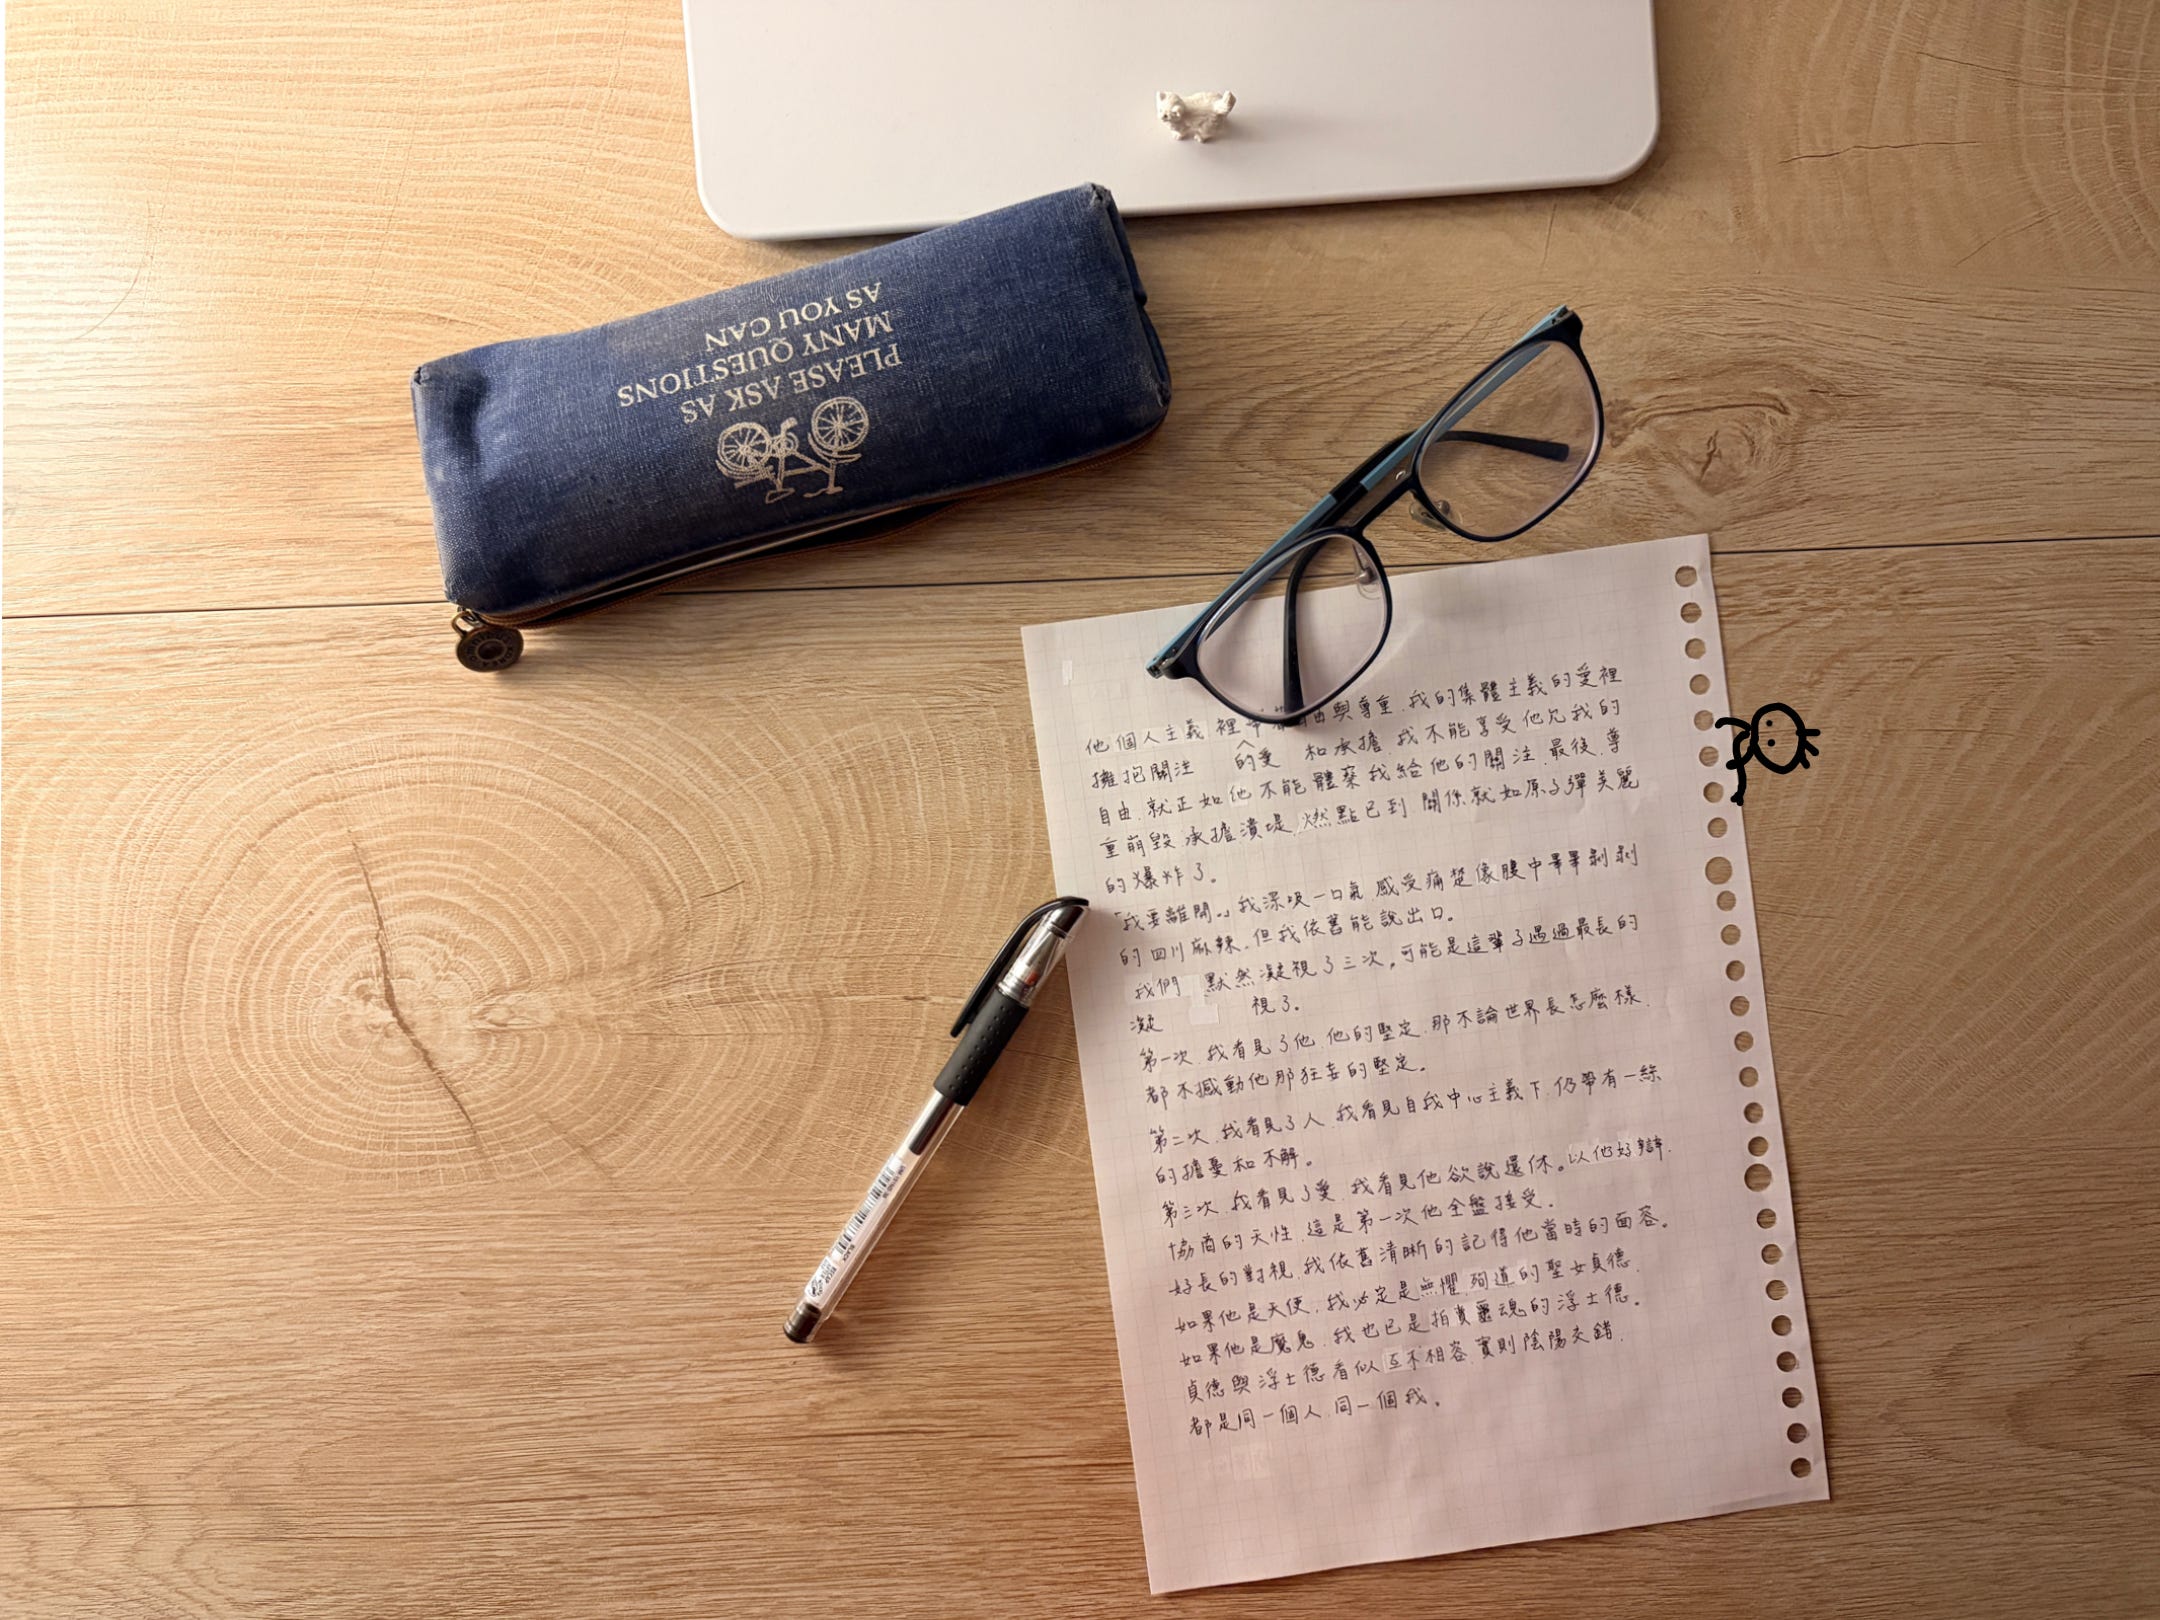 PLEASE ASK AS
MANY QUESTIONS
AS YOU CAN
他個人主義裡 由與尊重.我的集體主義的愛裡
擁抱關注 的愛 和承擔.我不能享受他允我的
自由.就正如他不能體察我給他的關注.最後.尊
重崩毀.承擔潰堤.燃點已到.關係就如原子彈美麗
的爆炸了。
「我要離開。」我深吸一口氣.感受痛楚像腹中畢畢剝剝
的四川麻辣.但我依舊能說出口。
我們 默然凝視了三次。可能是這輩子遇過最長的
凝 視了。
第一次.我看見了他.他的堅定.那不論世界長怎麼樣.
都不撼動他那狂妄的堅定。
第二次.我看見了人.我看見自我中心主義下.仍帶有一絲
的擔憂和不解。
第三次.我看見了愛.我看見他欲說還休。以他好辯.
協商的天性.這是第一次他全盤接受。
好長的對視.我依舊清晰的記得他當時的面容。
如果他是天使.我必定是無懼.殉道的聖女貞德.
如果他是魔鬼.我也已是拍賣靈魂的浮士德。
貞德與浮士德看似互不相容.實則陰陽交錯.
都是同一個人.同一個我。